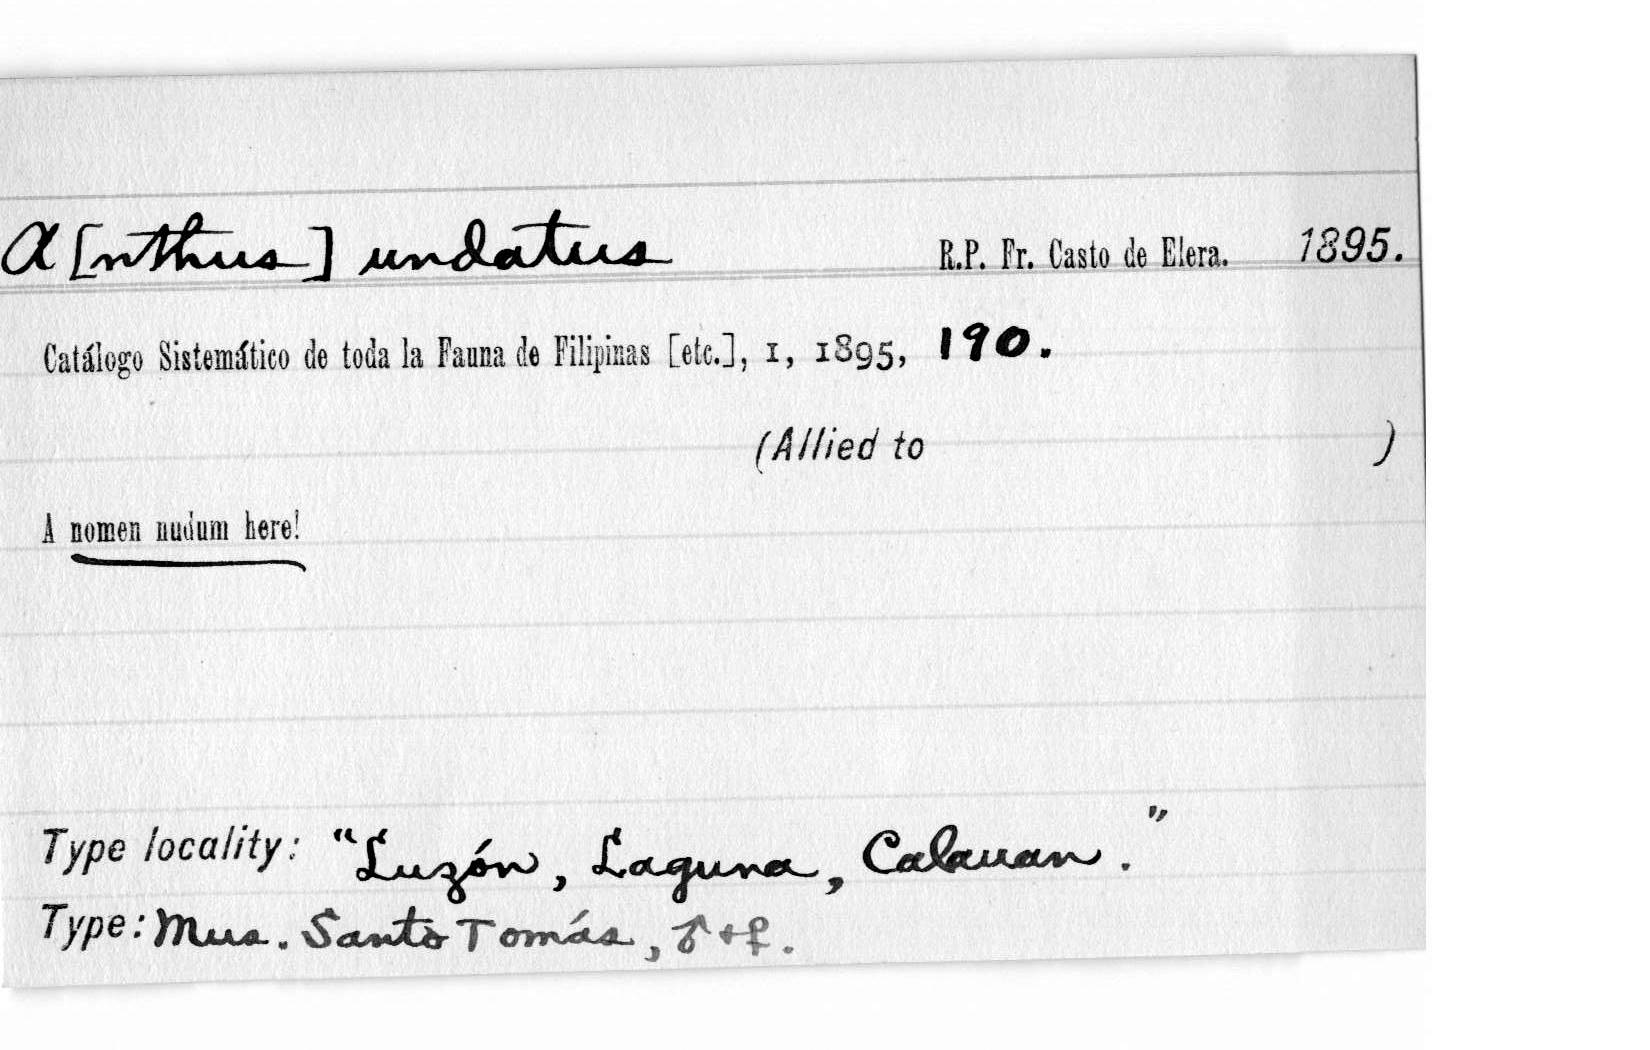 A[nthus] undatus R.P. Fr. Casto de Elera. 1895.
Catálogo Sistemático de toda la Fauna de Filipinas [etc.], 1, 1895, 190.
(Allied to )
A nomen nudum here!
Type locality: "Luzón, Laguna, Calauan."
Type: Mus. Santo Tomás, ♂+♀.